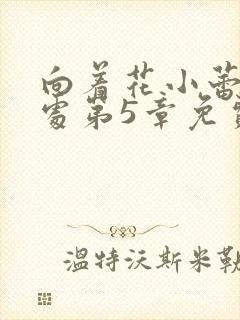 向着花小蕾
处第5章免
温特沃斯米勒